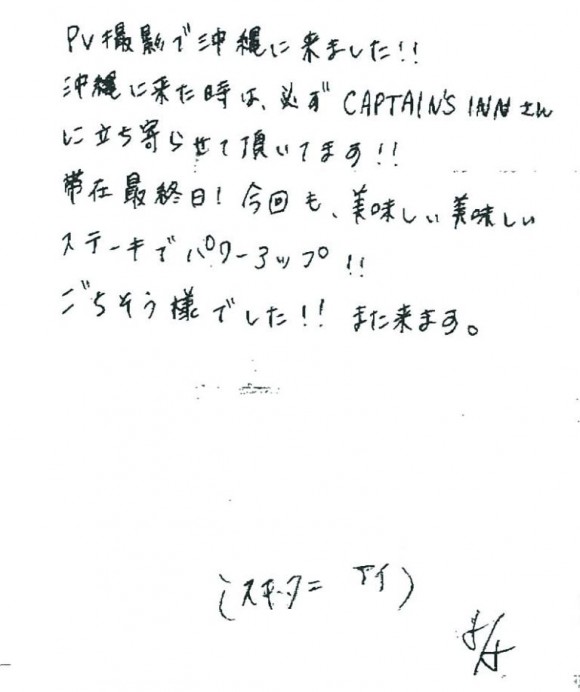 PV撮影で沖縄に来ました!!
沖縄に来た時は、必ず CAPTAIN'S INNさん
に立ち寄らせて頂いてます!!
帯在最終日! 今回も、美味しい美味しい
ステーキでパワーアップ!!
ごちそう様でした!! また来ます。
アイ)